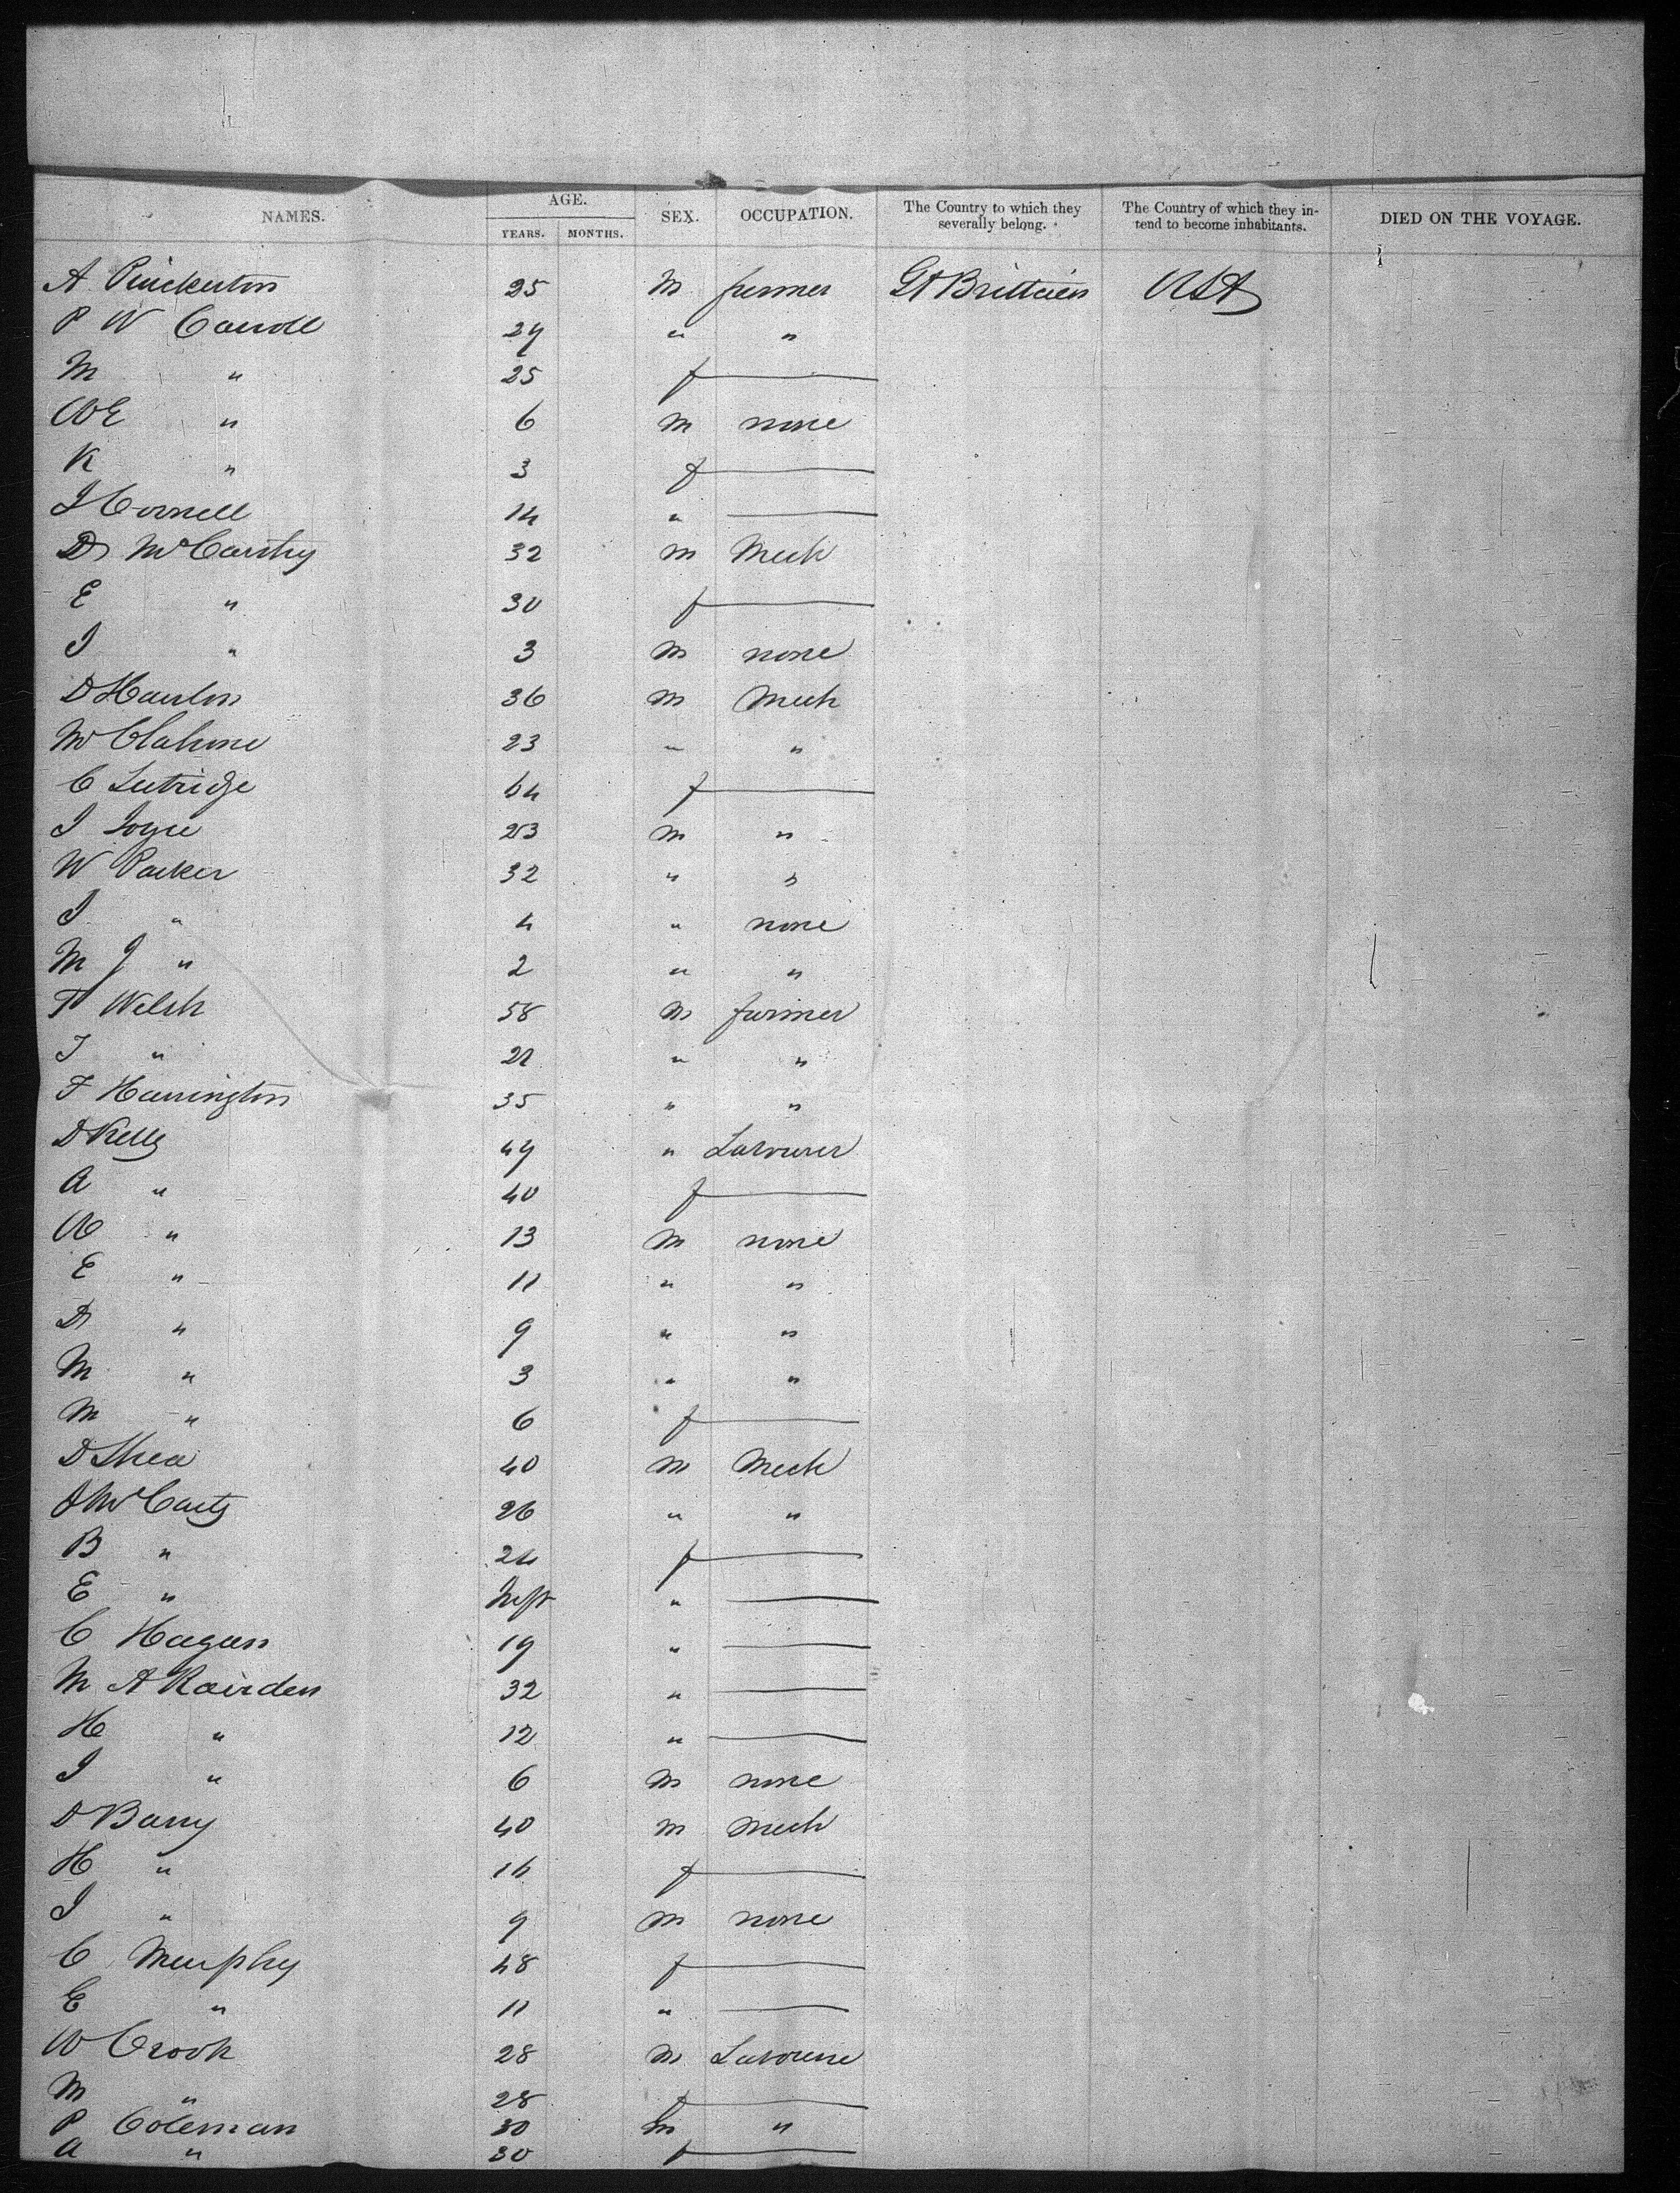 NAMES. AGE. YEARS. MONTHS. SEX. OCCUPATION. The Country to which they severally belong. The Country of which they intend to become inhabitants. DIED ON THE VOYAGE.
A Pinckerton 25 M farmer Gt Brittain USA
P W Carroll 27 " "
M " 25 f —
WE " 6 M none
K " 3 f —
J Connell 14 " —
D McCarthy 32 M Mech
E " 30 f —
J " 3 M none
D Hanlon 36 M Mech
23 " "
C 64 f —
J Joyce 23 M "
W Parker 32 " "
J " 4 " none
M J " 2 " "
T Welsh 58 M farmer
J " 21 " "
T Harrington 35 " "
D Kelly 49 " Labourer
A " 40 f —
W " 13 M none
E " 11 " "
D " 9 " "
M " 3 " "
M " 6 f —
D Shea 40 M Mech
J McCarty 26 " "
B " 24 f —
E " Inft " —
C Hagan 19 " —
M A Rairden 32 " —
H " 12 " —
J " 6 M none
D Barry 40 M Mech
H " 16 f —
J " 9 M none
C Murphy 48 f —
E " 11 " —
W Crook 28 M Labourer
M " 28 f —
P Coleman 30 M "
A " 30 f —